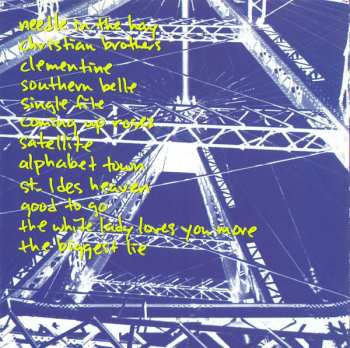 needle in the hay
christian brothers
clementine
southern belle
single file
coming up roses
satellite
alphabet town
st. ides heaven
good to go
the white lady loves you more
the biggest lie